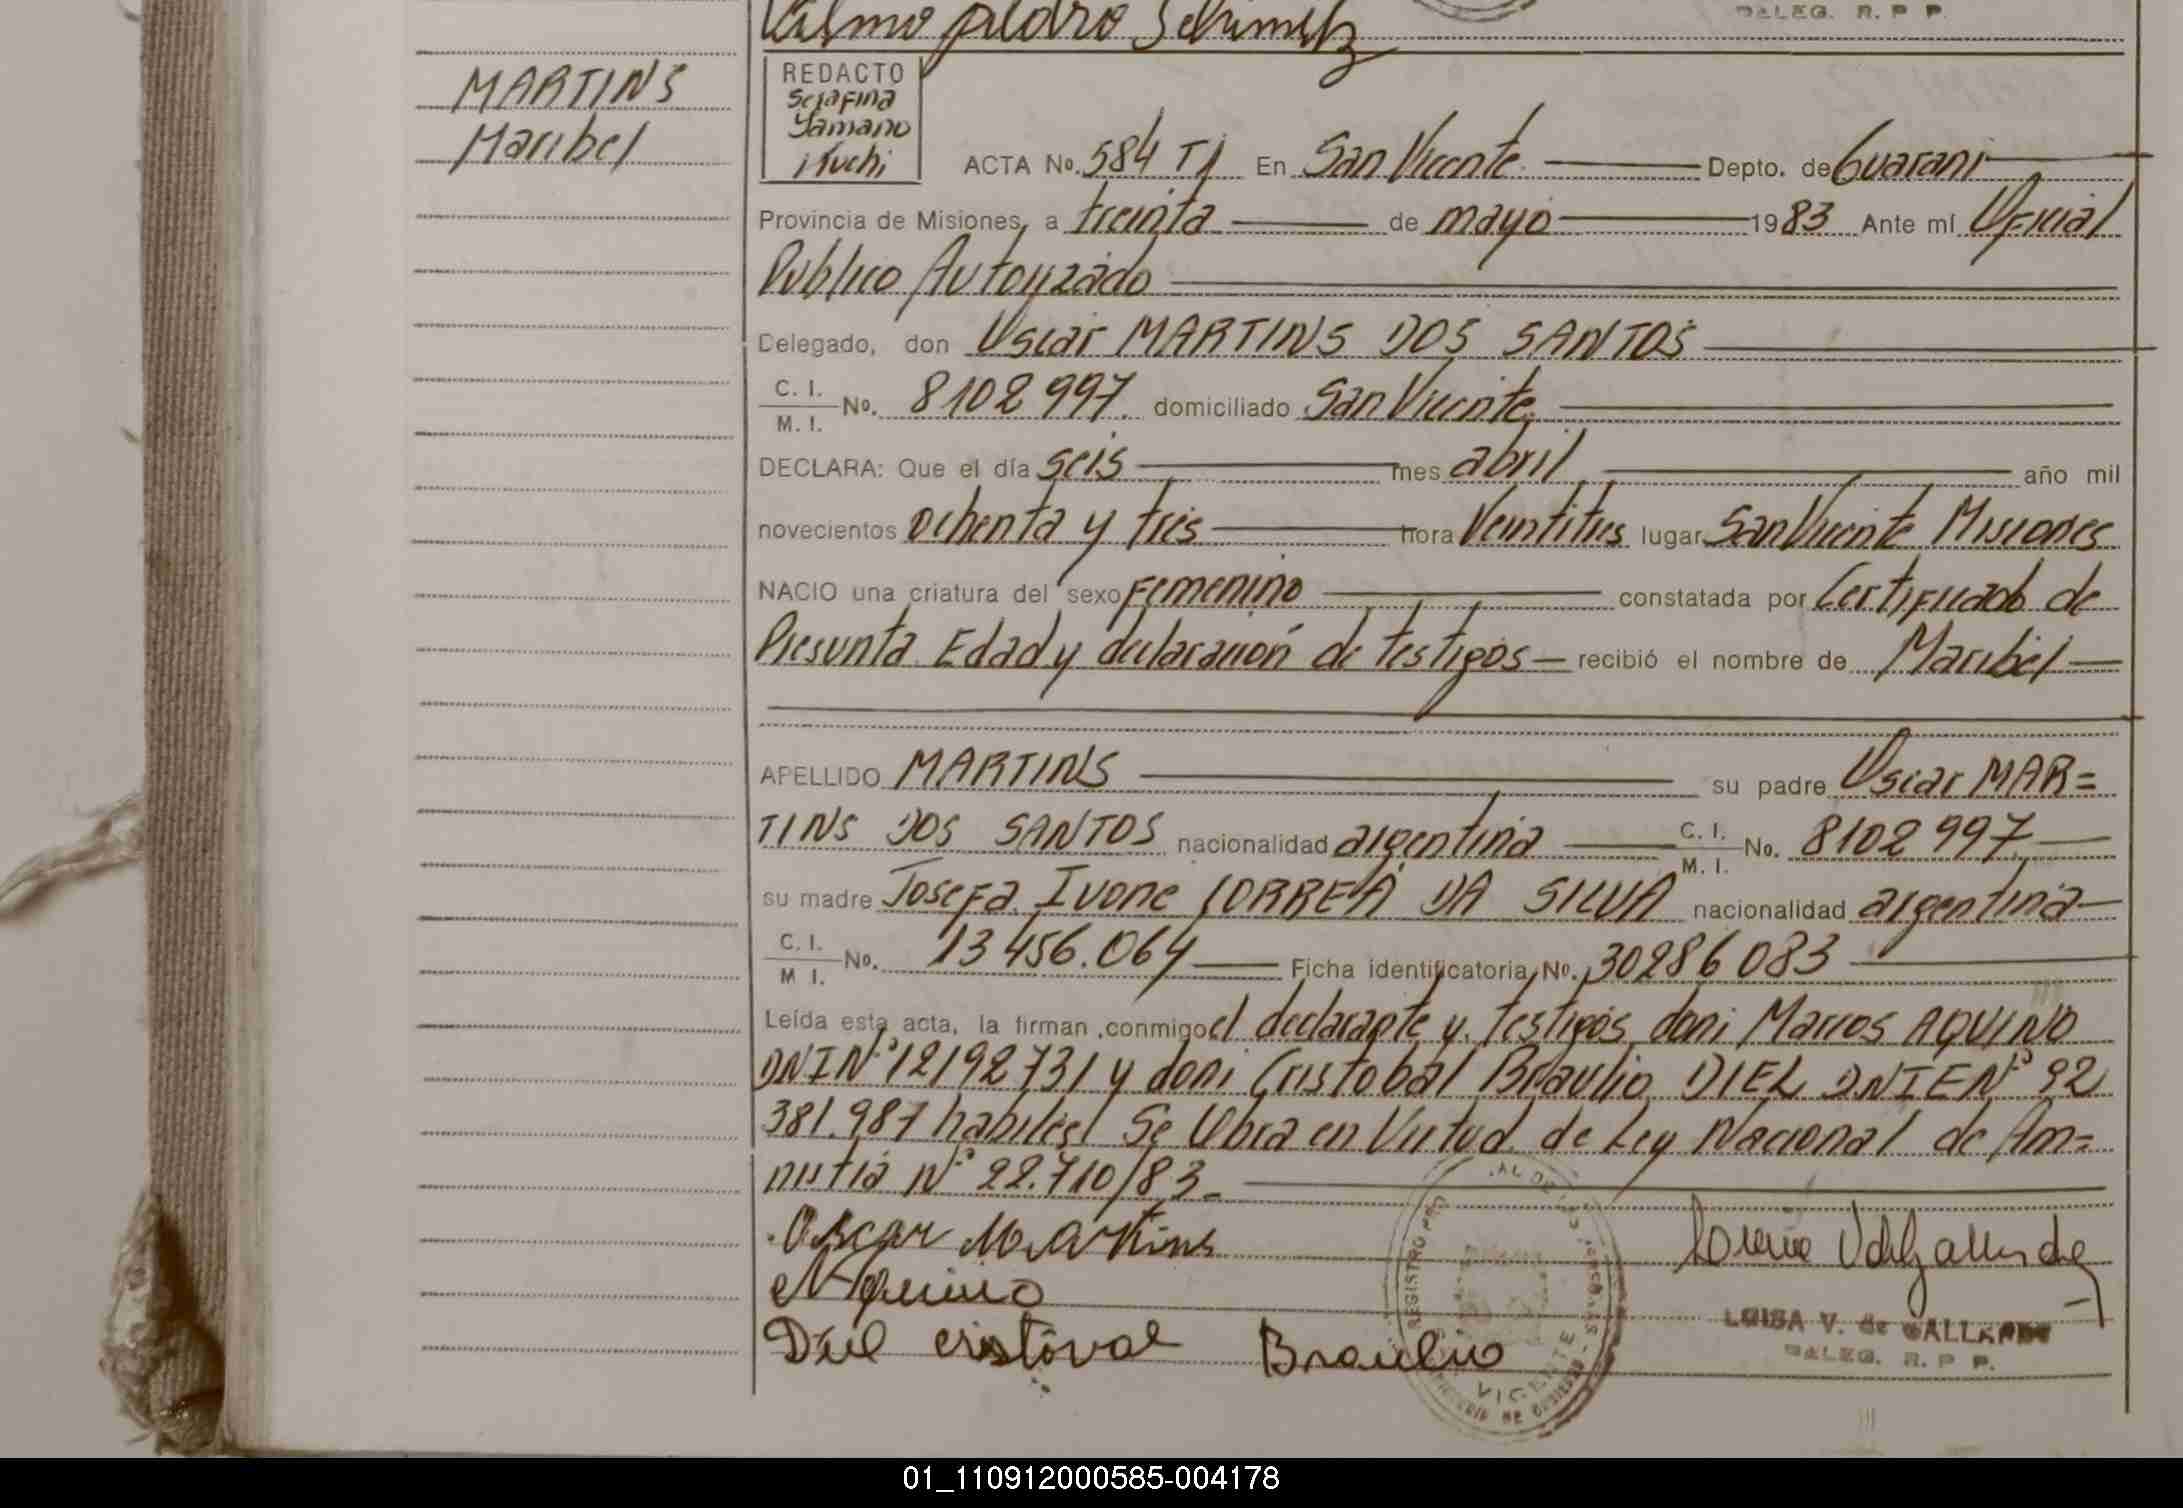 Pedro Schimitz
DALEG. R. P P.
MARTINS
Maribel
REDACTO
Serafina
Yamano
Kuchi
ACTA No. 584 TI En San Vicente Depto. de Guarani
Provincia de Misiones, a treinta de mayo 1983 Ante mí Oficial
Publico Autorizado
Delegado, don Oscar MARTINS DOS SANTOS
C. I.
M. I. No. 8102997 domiciliado San Vicente
DECLARA: Que el día seis mes abril año mil
novecientos ochenta y tres hora Veintitres lugar San Vicente Misiones
NACIO una criatura del sexo Femenino constatada por Certificado de
Presunta Edad y declaración de testigos — recibió el nombre de Maribel —
APELLIDO MARTINS su padre Oscar MAR=
TINS DOS SANTOS nacionalidad argentina C. I. M. I. No. 8102997
su madre Josefa Ivone CORREA DA SILVA nacionalidad argentina
C. I.
M I. No. 13456.064 Ficha identificatoria No. 30286083
Leída esta acta, la firman conmigo el declarante y testigos don: Marcos AQUINO
DNI Nº 12192731 y don: Cristobal Braulio DIEL DNIE Nº 92
381.987 habiles/ Se labra en Virtud de Ley Nacional de Am=
nistia Nº 22.710/83_
Oscar Martins
Aquino
Diel cristoval Braulio
REGISTRO
VICENTE
LUISA V. de GALLARDO
DALEG. R. P P.
01_110912000585-004178